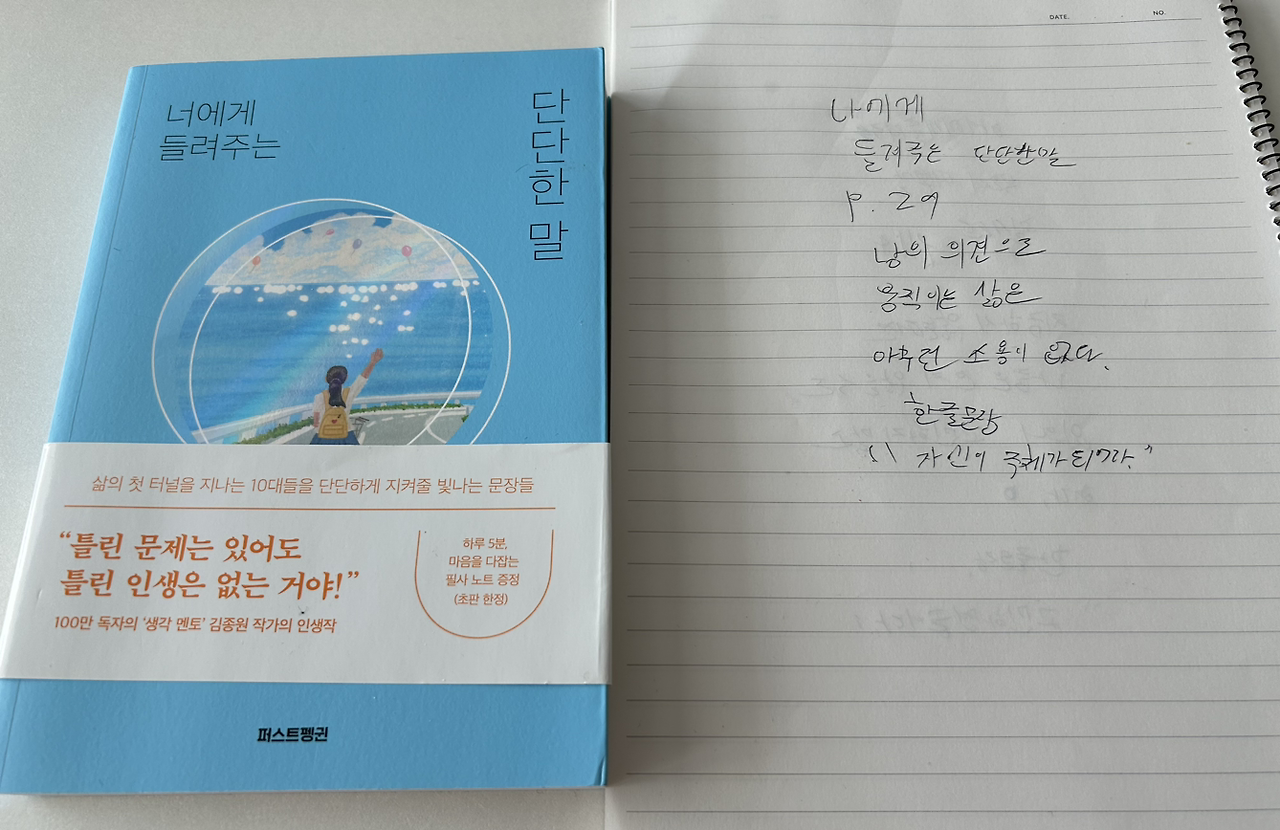 너에게
들려주는
단단한 말
삶의 첫 터널을 지나는 10대들을 단단하게 지켜줄 빛나는 문장들
“틀린 문제는 있어도
틀린 인생은 없는 거야!”
100만 독자의 ‘생각 멘토’ 김종원 작가의 인생작
하루 5분,
마음을 다잡는
필사 노트 증정
(초판 한정)
퍼스트펭귄
DATE. NO.
나에게
들려주는 단단한말
p. 29
남의 의견으로
움직이는 삶은
아무런 소용이 없다.
한글문장
“ 자신이 주체가 되어라.”